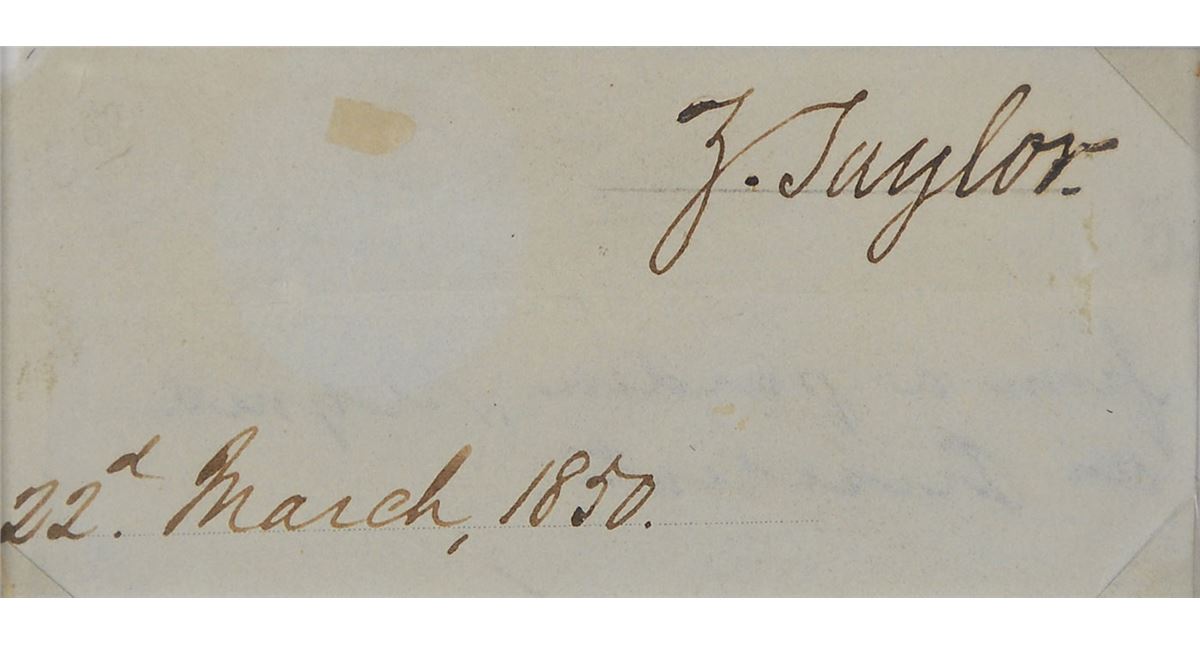 Z. Taylor.
22d. March, 1850.